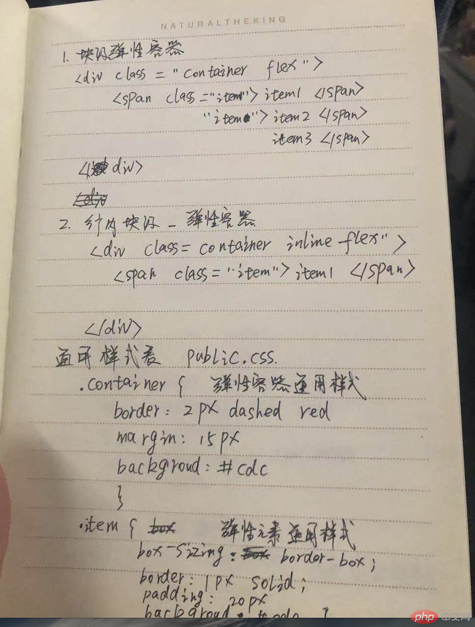 NATURALTHEKING
1. 块级弹性容器
<div class = "container flex">
<span class = "item"> item1 </span>
"item"> item2 </span>
item3 </span>
</div>
2. 行内块级_弹性容器
<div class = container inline flex">
<span class = "item"> item1 </span>
</div>
通用样式表 public.css.
.container { 弹性容器通用样式
border: 2px dashed red
margin: 15px
backgroud: #cdc
}
.item { 弹性元素通用样式
box-sizing: border-box;
border: 1px solid;
padding: 20px
backgroud:
php 中文网